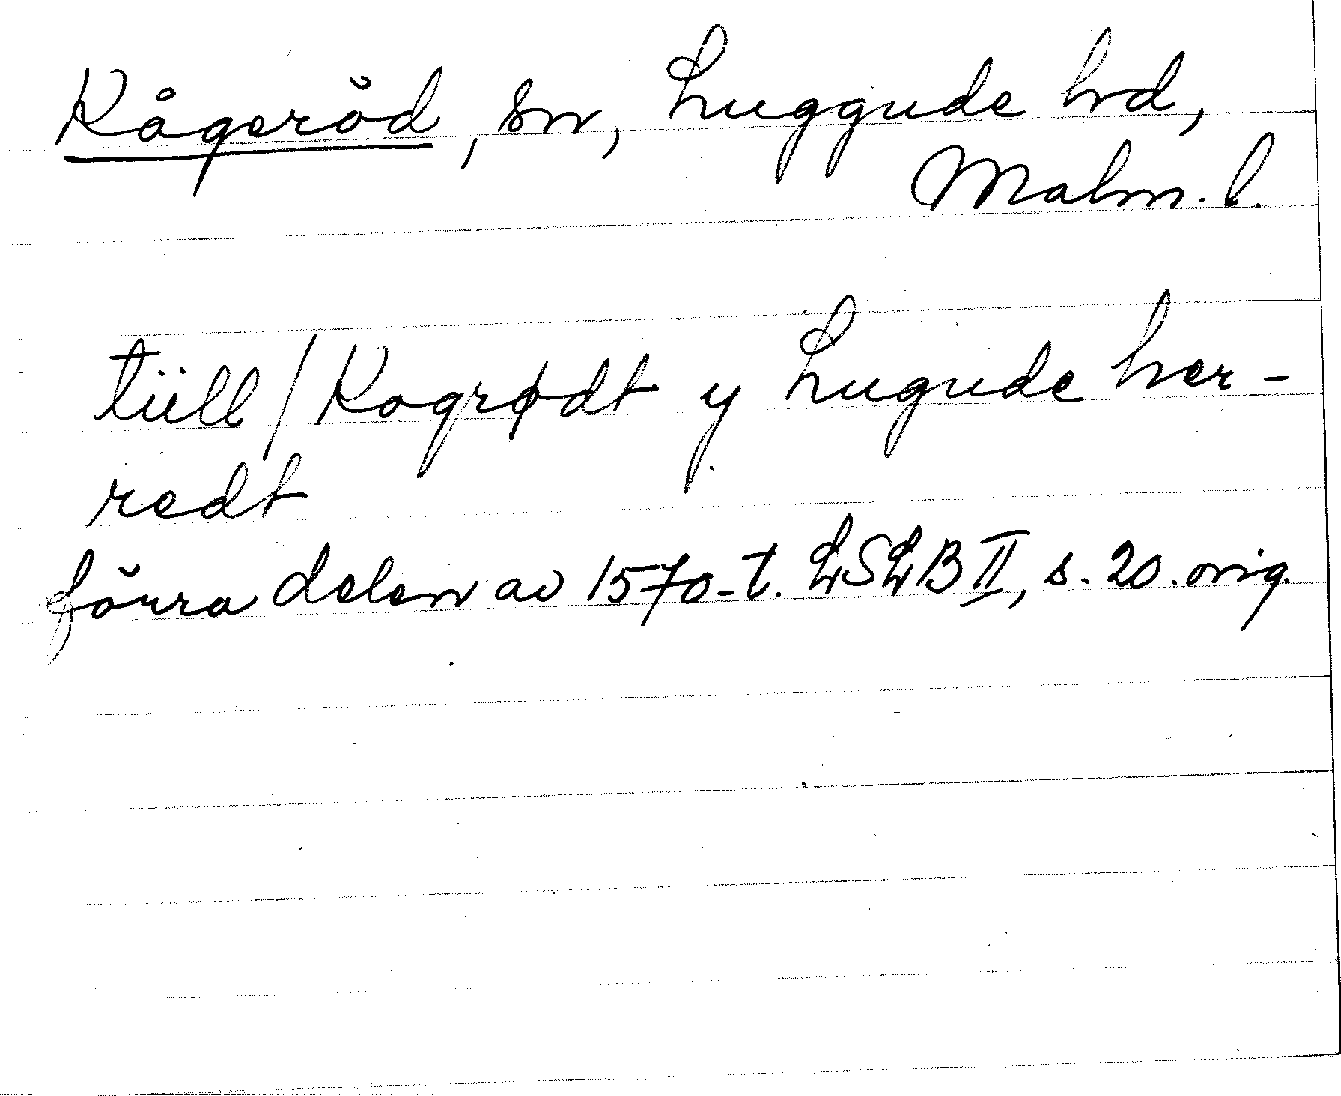 Kågeröd, sn, Luggude hd,
Malm. l.
tiill / Kogrødt y Lugude her-
redt
förra delen av 1570-t. LSLB II, s. 20. orig.